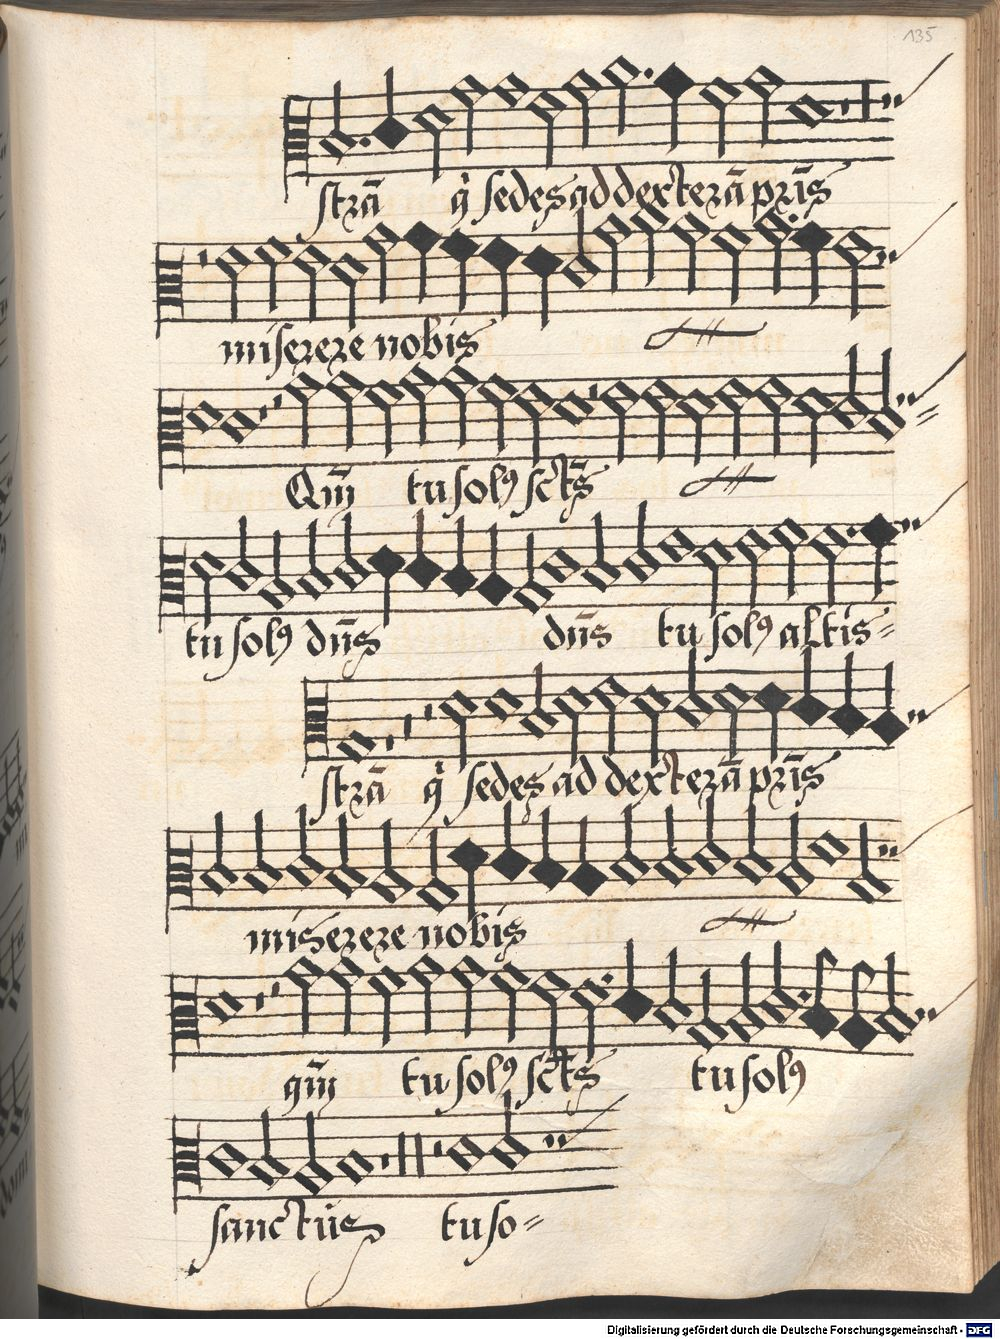 135
strā q̇ sedes ad dexterā pr̄is
miserere nobis
Qm̄ tu solꝰ sct̄s
tu solꝰ dn̄s dn̄s tu solꝰ altis=
strā q̇ sedes ad dexterā pr̄is
miserere nobis
qm̄ tu solꝰ sct̄s tu solꝰ
sanctūs tu so=
Digitalisierung gefördert durch die Deutsche Forschungsgemeinschaft - DFG